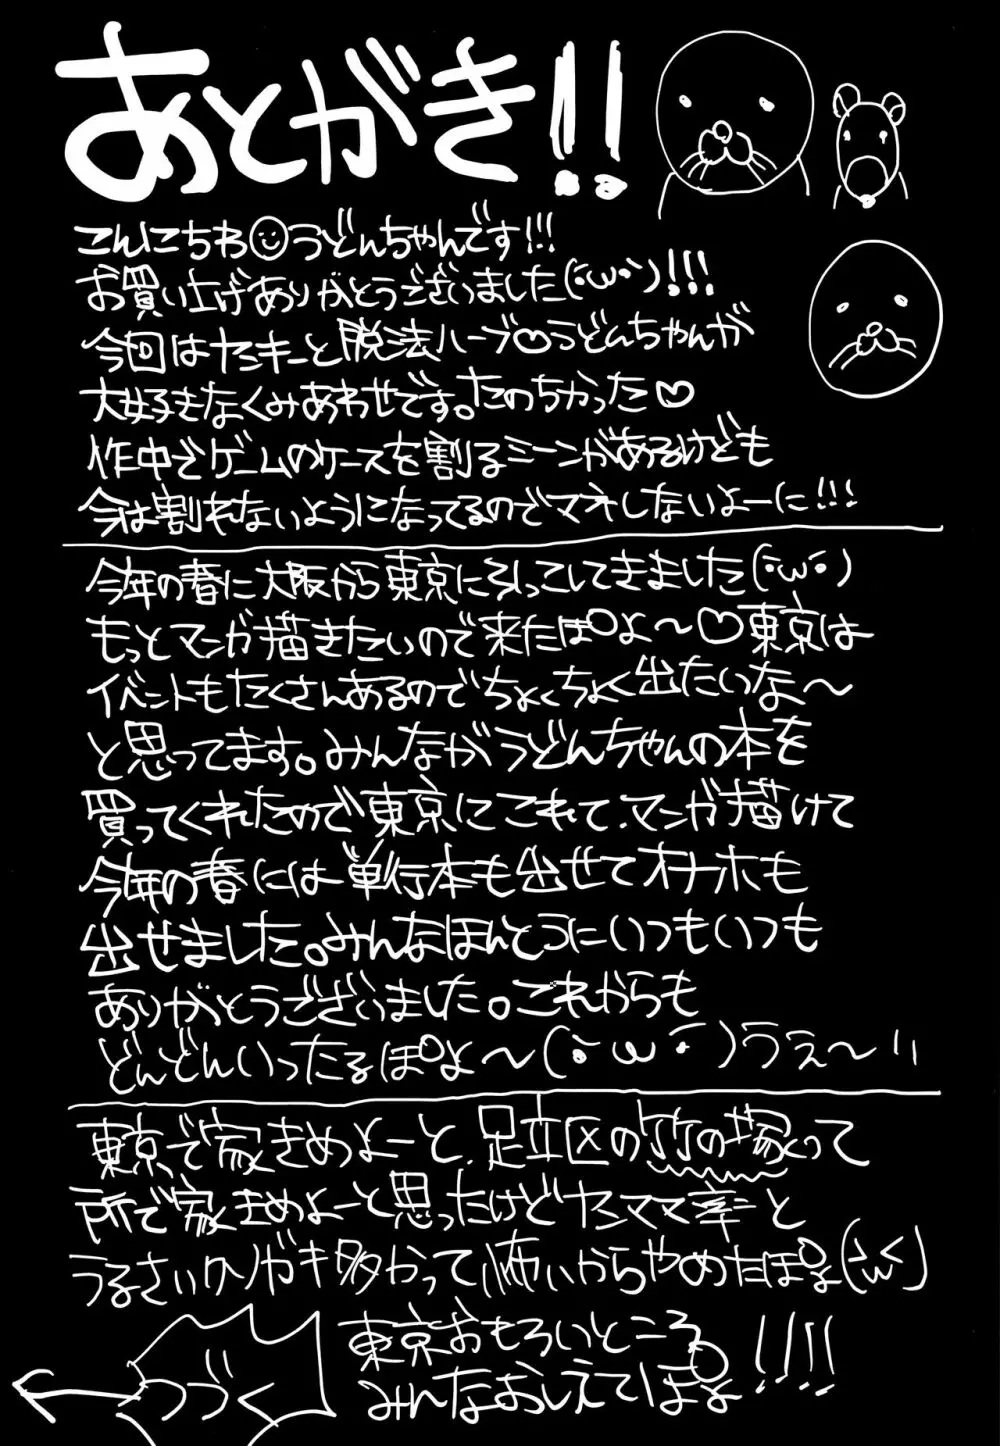 あとがき!!
こんにちわ☺うどんちゃんです!!!
お買い上げありがとうございました(´・ω・`)!!!
今回はヤンキーと脱法ハーブ♡うどんちゃんが
大好きなくみあわせです。たのちかった♡
作中でゲームのケースを割るシーンがあるけども
今は割れないようになってるのでマネしないよーに!!!
今年の春に大阪から東京に引っこしてきました(´・ω・`)
もっとマンガ描きたいので来たぽよ〜♡東京は
イベントもたくさんあるのでちょくちょく出たいな〜
と思ってます。みんながうどんちゃんの本を
買ってくれたので東京にこれて、マンガ描けて
今年の春には単行本も出せてオナホも
出せました。みんなほんとうにいつもいつも
ありがとうございました。これからも
どんどんいったるぽよ〜(´・ω・`)うぇ〜い
東京で家きめよーと、足立区の竹の塚って
所で家きめよーと思ったけどヤンママ率と
うるさいクソガキ多かって怖いからやめたぽよ(´ω<)
東京おもろいところ
みんなおしえてぽよ!!!!
つづく